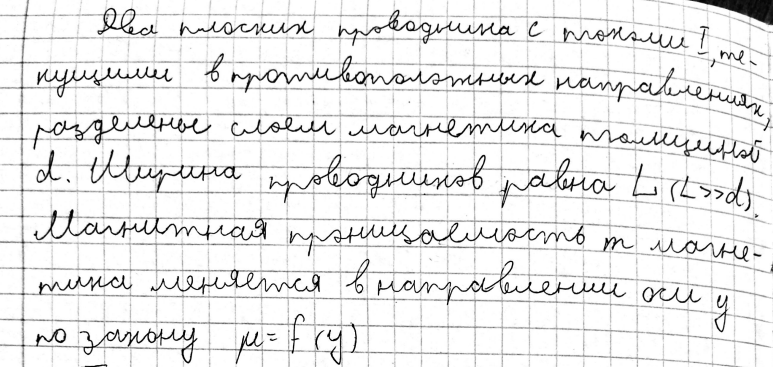 Два плоских проводника с токами I, те-
кущими в противоположных направлениях,
разделены слоем магнетика толщиной
d. Ширина проводников равна L (L>>d).
Магнитная проницаемость m магне-
тика меняется в направлении оси y
по закону μ = f(y)